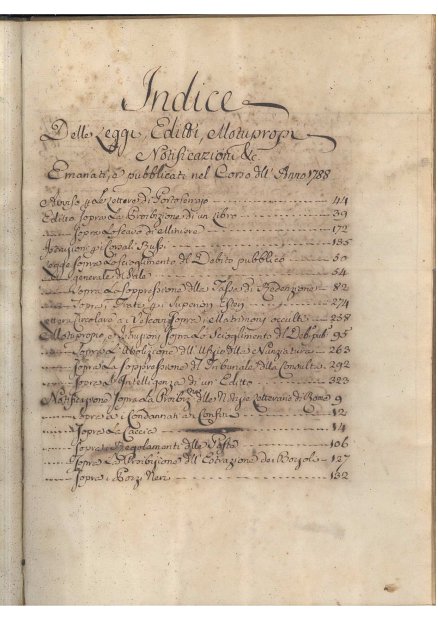 Indice
Delle Leggi, Editti, Motupropri
Notificazioni &c.
Emanati, e pubblicati nel Corso dell' Anno 1788
Avviso p le Lettere di Portoferrajo 44
Editto sopra La Proibizione di un Libro 39
Sopra Lo scavo di Miniere 172
135
Legge sopra Lo scioglimento del Debito pubblico 50
generale di 54
Sopra La soppressione della Tassa di Redenzione 82
Sopra i Frati, e i Superiori Esteri 274
Lettera Circolare a i Vicari sopra i Matrimoni occulti 258
Motuproprio, e Istruzioni sopra Lo Scioglimento del Deb. pub. 95
Sopra L'Abolizione dell' Ufizio della Nunziatura 263
Sopra La Soppressione del Tribunale della Consulta 292
Sopra L'Intelligenza di un' Editto 323
Notificazione Sopra La Proibiz. delle Notizie Letterarie di Roma 9
Sopra i Condannati a i Confini 12
Sopra La Caccia 14
Sopra i Regolamenti delle Poste 106
Sopra La Proibizione dell' Estrazione dei Bozzoli 127
Sopra i Pozzi Neri 132